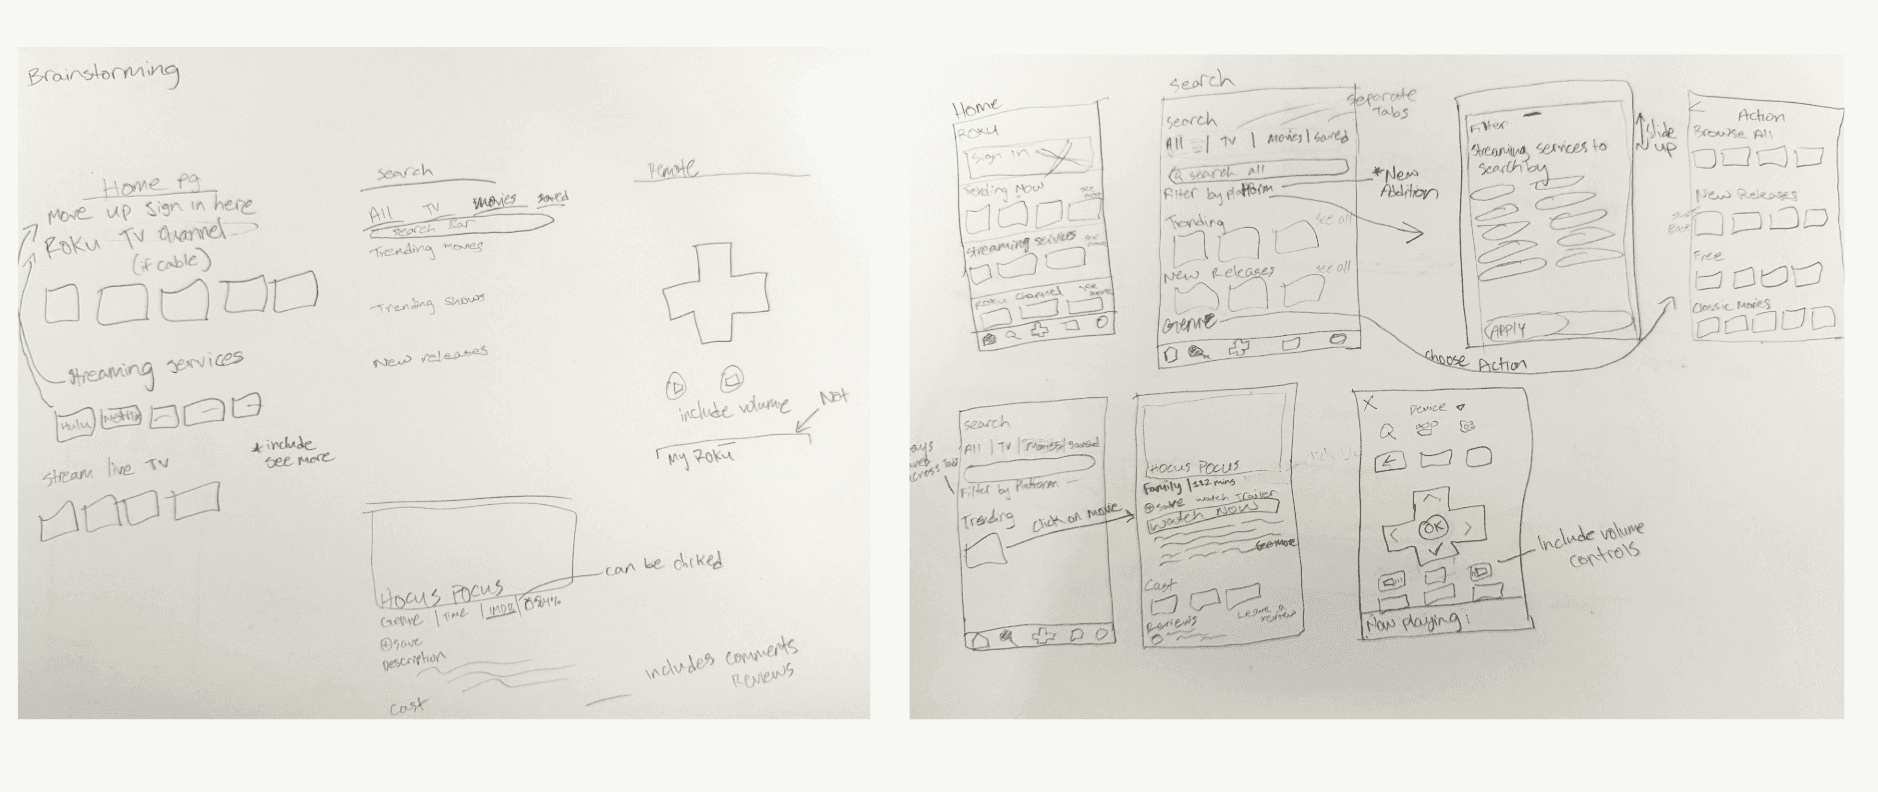 Brainstorming
Home pg
Move up sign in here
Roku TV channel
(if cable)
Streaming services
Hulu
Netflix
* include
see more
stream live TV
Search
All TV Movies saved
search bar
Trending movies
Trending shows
New releases
Remote
include volume
Not
My Roku
can be clicked
HOCUS POCUS
Genre | Time | IMDB | 84%
save
Description
Cast
includes comments
Reviews
Home
ROKU
Sign in
Trending Now
see more
Streaming services
see more
Roku channel
see more
Search
search
separate
Tabs
All | TV | Movies | saved
search all
Filter by platform
* New
Addition
Trending
see all
New Releases
see all
Genre
Choose Action
Filter
Streaming services to
search by
APPLY
Slide
up
Action
Browse All
New Releases
Free
Classic Movies
search
All | TV | Movies | saved
Filter by Platform
Trending
Click on Movie
HOCUS POCUS
Family | 112 mins
save watch Trailer
Watch Now
see more
Cast
Reviews
Leave a
review
X
Device
OK
Include volume
controls
Now playing: